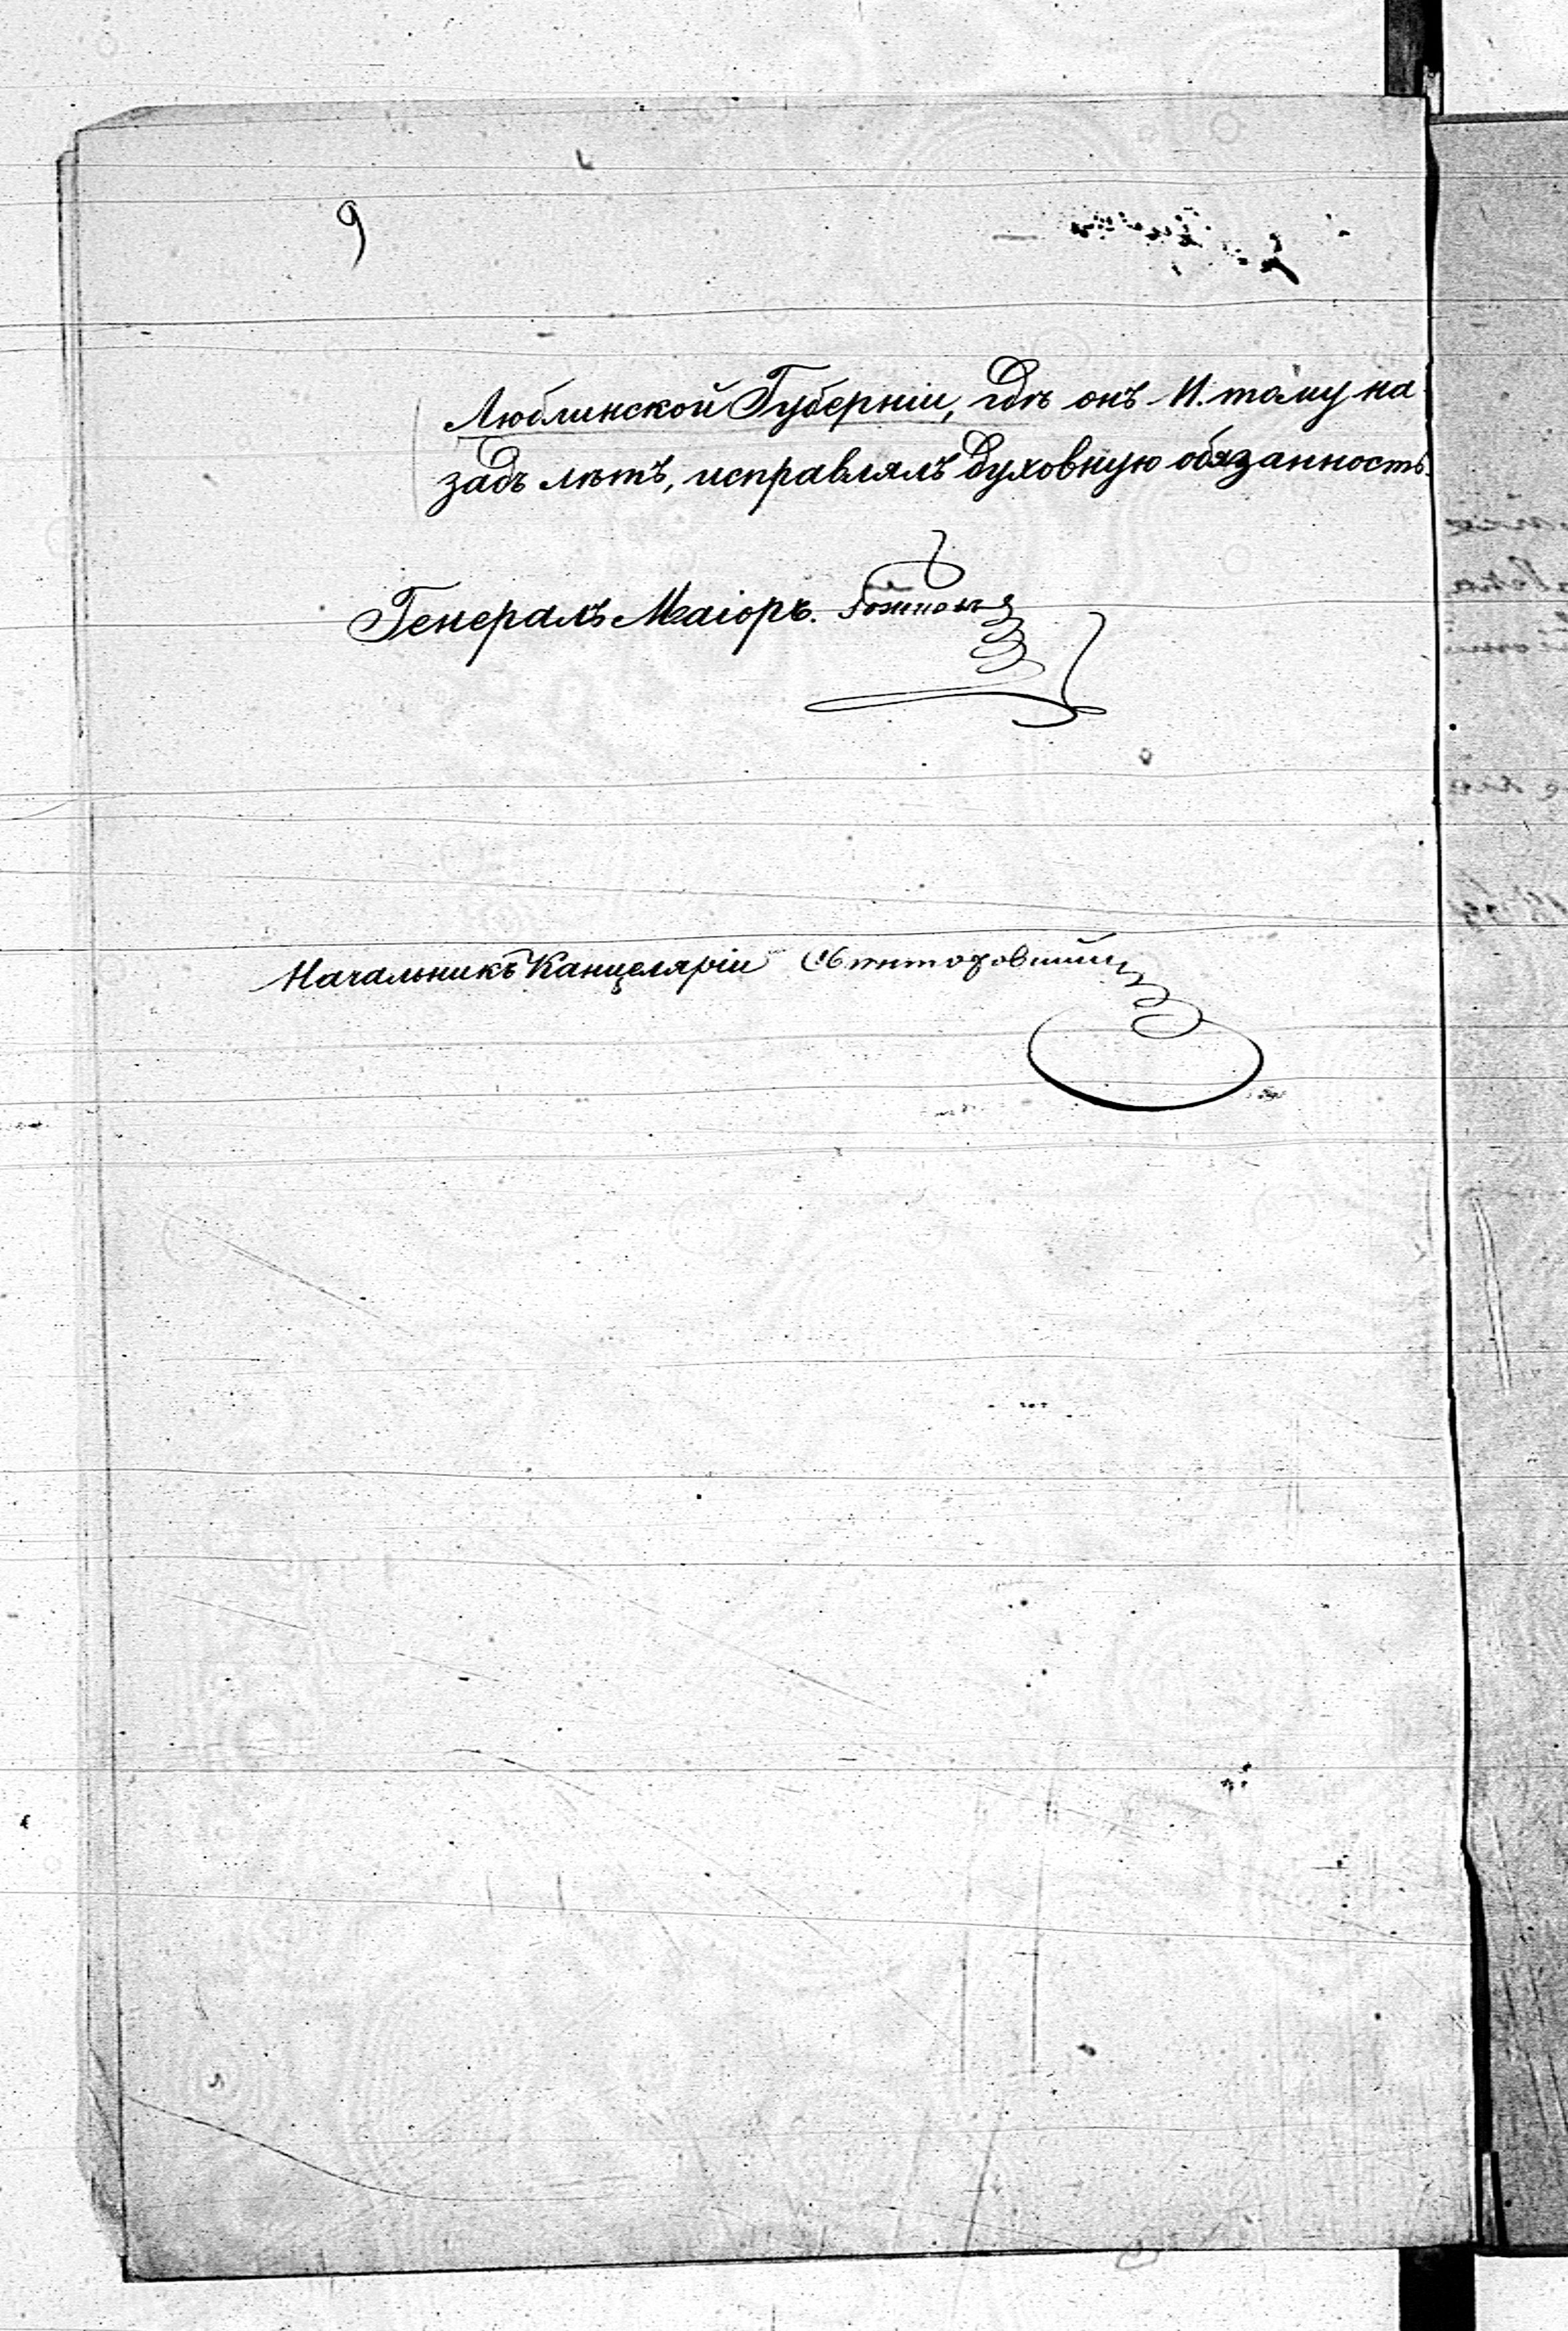 9
Люблинской Губерніи, гдѣ онъ 11. тому на-
задъ лѣтъ, исправлялъ духовную обязанность.
Генералъ Маіоръ.
Начальникъ Канцеляріи